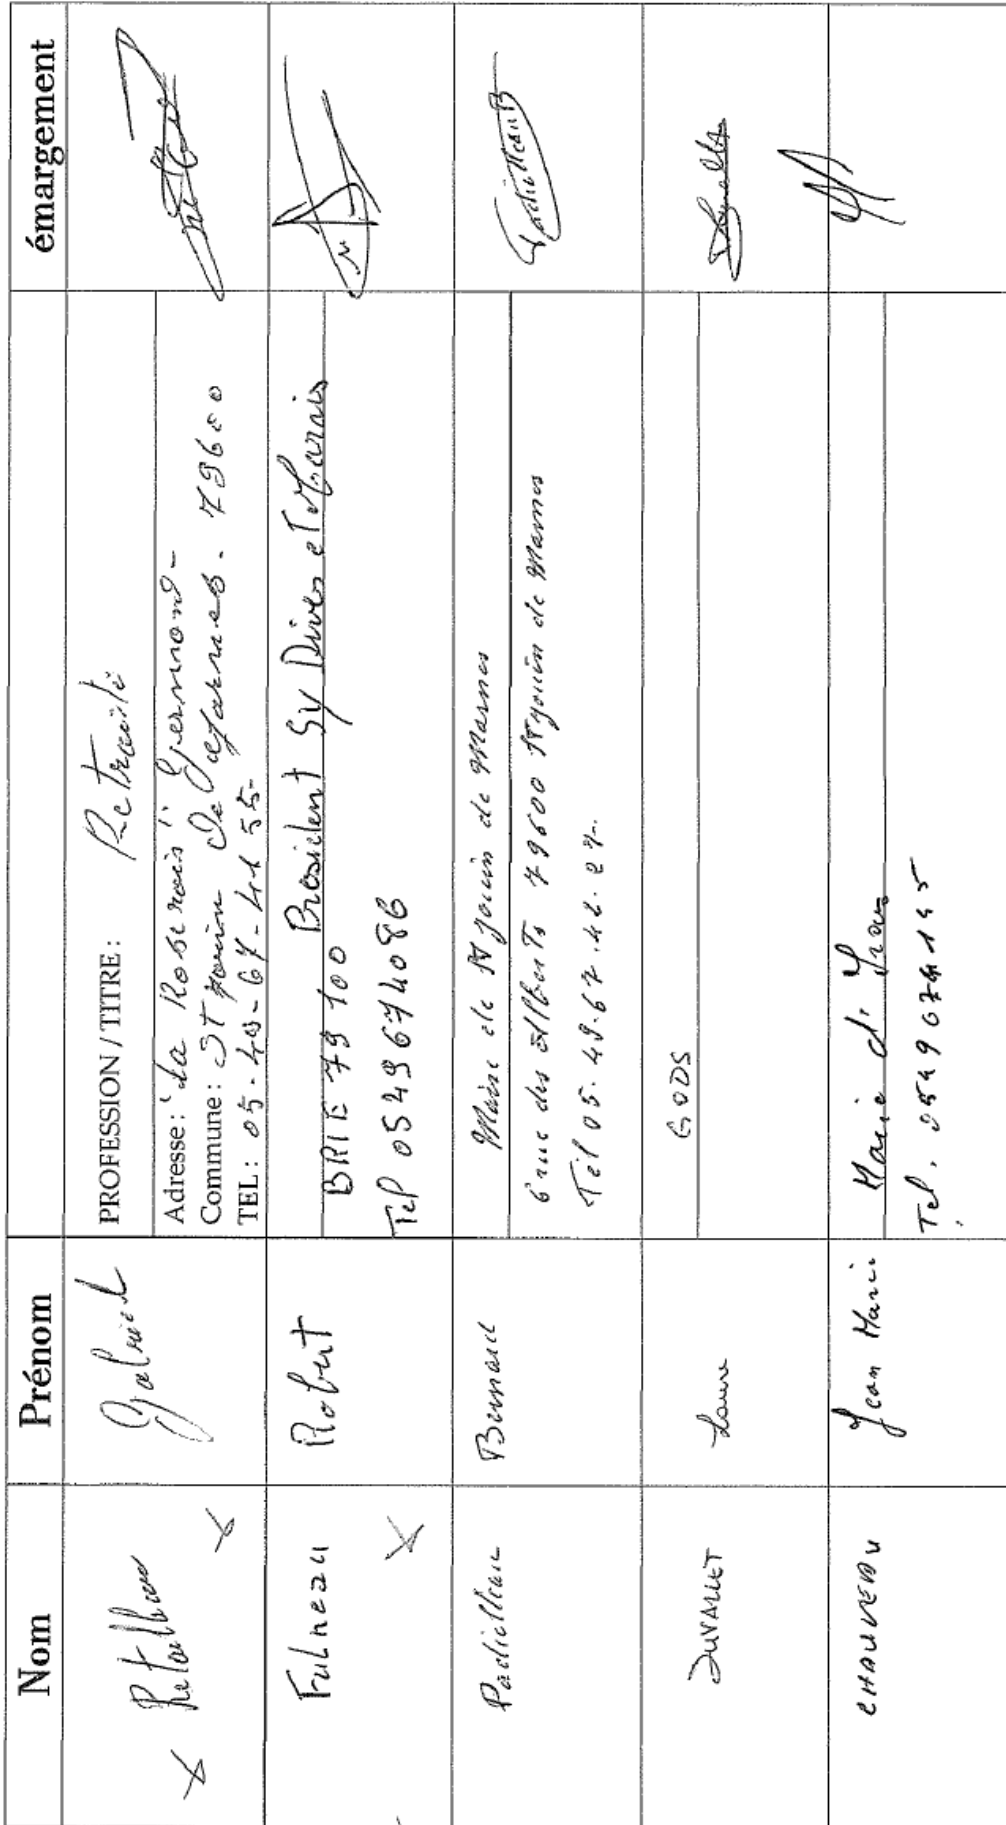 Nom Prénom émargement
Retailleau Gabriel PROFESSION / TITRE : Retraité
Adresse : "La Roseraie" Germond -
Commune : ST Jouin De Marnes - 79600
TEL : 05-49-67-41 55-
Fulneau Robert President Sy Dives et Marais
BRIE 79 100
Tel 0549674086
Padiolleau Bernard Maire de St Jouin de Marnes
6 rue des Alberts 79600 St Jouin de Marnes
Tél 05.49.67.42.27.
DUVALLET Laure GODS
CHAUVEAU Jean Marie Mairie d'Irais
Tel. 0549674145